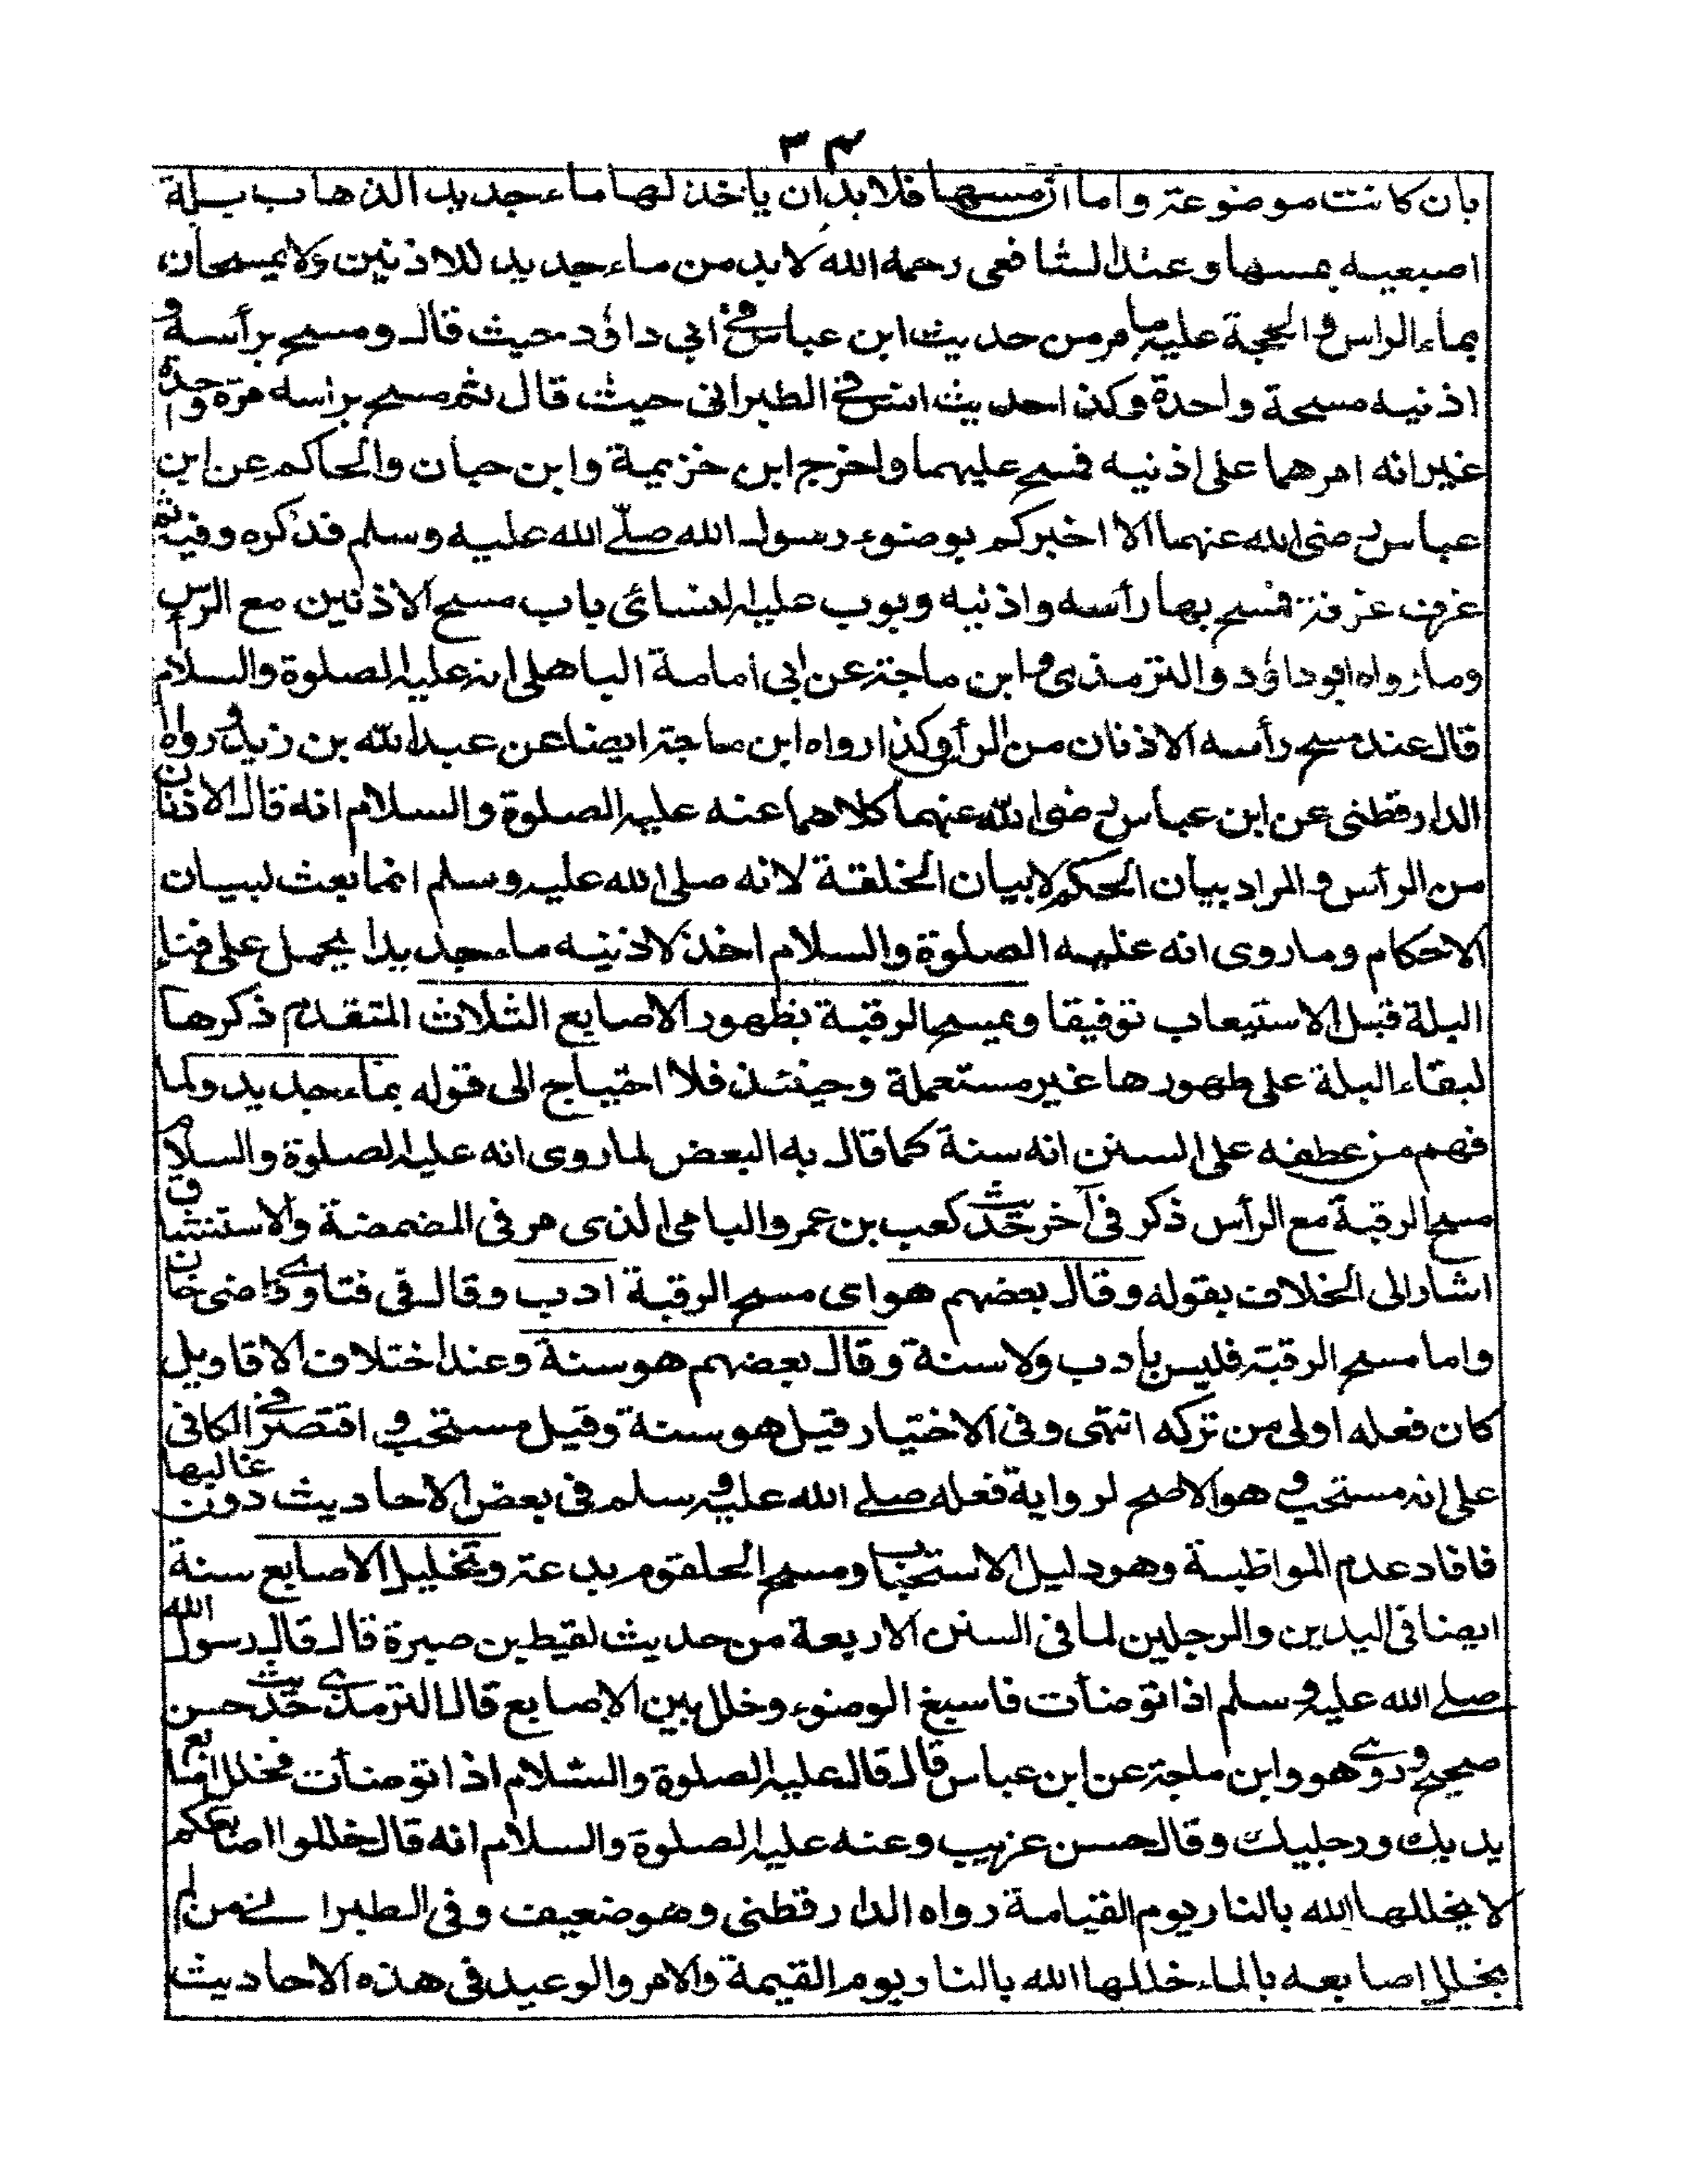 ٣٤
بان كانت موضوعة واما ان مسها فلا بد ان ياخذ لها ماء جديد الذهاب بلة
اصبعيه بمسها وعند الشافعى رحمه الله لا بد من ماء جديد للاذنين ولا يمسحان
بماء الراس والحجة عليه ما مر من حديث ابن عباس فى ابي داؤد حيث قال ومسح برأسه و
اذنيه مسحة واحدة وكذا حديث انس فى الطبرانى حيث قال ثم مسح براسه مرة واحدة
غير انه امرهما على اذنيه فمسح عليهما واخرج ابن خزيمة وابن حبان والحاكم عن ابن
عباس رضى الله عنهما الا اخبركم بوضوء رسول الله صلے الله عليه وسلم فذكره وفيه ثم
غرف غرفة فمسح بها رأسه واذنيه وبوب عليه النسائى باب مسح الاذنين مع الرأس
وما رواه ابو داؤد والترمذى وابن ماجة عن ابى امامة الباهلى انه عليه الصلوة والسلام
قال عند مسح رأسه الاذنان من الرأس وكذا رواه ابن ماجة ايضا عن عبد الله بن زيد ورواه
الدارقطنى عن ابن عباس رضى الله عنهما كلاهما عنه عليه الصلوة والسلام انه قال الاذنان
من الرأس والمراد بيان الحكم لا بيان الخلقة لانه صلى الله عليه وسلم انما بعث لبيان
الاحكام وما روى انه عليه الصلوة والسلام اخذ لاذنيه ماء جديدا يحمل على فناء
البلة قبل الاستيعاب توفيقا ويمسح الرقبة بظهور الاصابع الثلاث المتقدم ذكرها
لبقاء البلة على ظهورها غير مستعملة وحينئذ فلا احتياج الى قوله بماء جديد ولما
فهم من عطفه على السنن انه سنة كما قال به البعض لما روى انه عليه الصلوة والسلام
مسح الرقبة مع الرأس ذكر فى آخر حديث كعب بن عمرو اليامى الذى مر فى المضمضة والاستنشاق
اشار الى الخلاف بقوله وقال بعضهم هو اى مسح الرقبة ادب وقال فى فتاوے قاضى خان
واما مسح الرقبة فليس بادب ولا سنة وقال بعضهم هو سنة وعند اختلاف الاقاويل
كان فعله اولى من تركه انتهى وفى الاختيار قيل هو سنة وقيل مستحب واقتصر فى الكافى
على انه مستحب وهو الاصح لرواية فعله صلے الله عليه وسلم فى بعض الاحاديث دون غالبها
فافاد عدم المواظبة وهو دليل الاستحباب ومسح الحلقوم بدعة وتخليل الاصابع سنة
ايضا فى اليدين والرجلين لما فى السنن الاربعة من حديث لقيط بن صبرة قال قال رسول الله
صلے الله عليه وسلم اذا توضأت فاسبغ الوضوء وخلل بين الاصابع قال الترمذے حديث حسن
صحيح وروے هو وابن ماجة عن ابن عباس قال قال عليه الصلوة والسلام اذا توضأت فخلل اصابع
يديك ورجليك وقال حسن غريب وعنه عليه الصلوة والسلام انه قال خللوا اصابعكم
لا يخللها الله بالنار يوم القيامة رواه الدارقطنى وهو ضعيف وفى الطبرانے من لم
يخلل اصابعه بالماء خللها الله بالنار يوم القيمة والامر والوعيد فى هذه الاحاديث